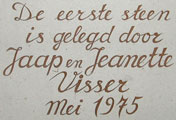 De eerste steen
is gelegd door
Jaap en Jeanette
Visser
Mei 1975